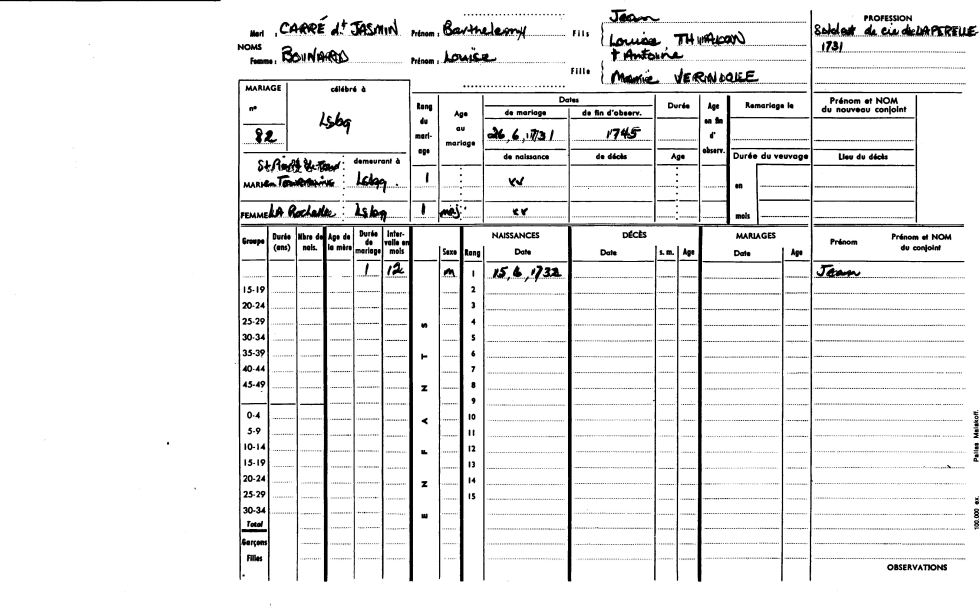 Jean
PROFESSION
Mari : CARRÉ dit JASMIN Prénom : Barthelemy Fils Louise Soldat de cie de LAPERELLE
NOMS 1731
† Antoine
Femme : BOUNARD Prénom : Louise
Fille Marie
MARIAGE célébré à
n° 82 Lsbg
Rang du mariage
Age au mariage
Dates
de mariage de fin d'observ.
26, 6, 1731 1745
de naissance de décès
Durée
Age
Age en fin d' observ.
Remariage le
Durée du veuvage
en
mois
Prénom et NOM du nouveau conjoint
Lieu du décès
demeurant à
MARI Lsbg. 1 xv
FEMME LA Rochelle Lsbg 1 maj. xv
Groupe Durée (ans) Nbre de nais. Age de la mère Durée de mariage Inter-valle en mois
ENFANTS
Sexe Rang
NAISSANCES Date
DÉCÈS Date s. m. Age
MARIAGES Date Age
Prénom Prénom et NOM du conjoint
1 12 M 1 15, 6, 1732 Jean
15-19 2
20-24 3
25-29 4
30-34 5
35-39 6
40-44 7
45-49 8
9
0-4 10
5-9 11
10-14 12
15-19 13
20-24 14
25-29 15
30-34
Total
Garçons
Filles
OBSERVATIONS
100.000 ex. Malakoff.